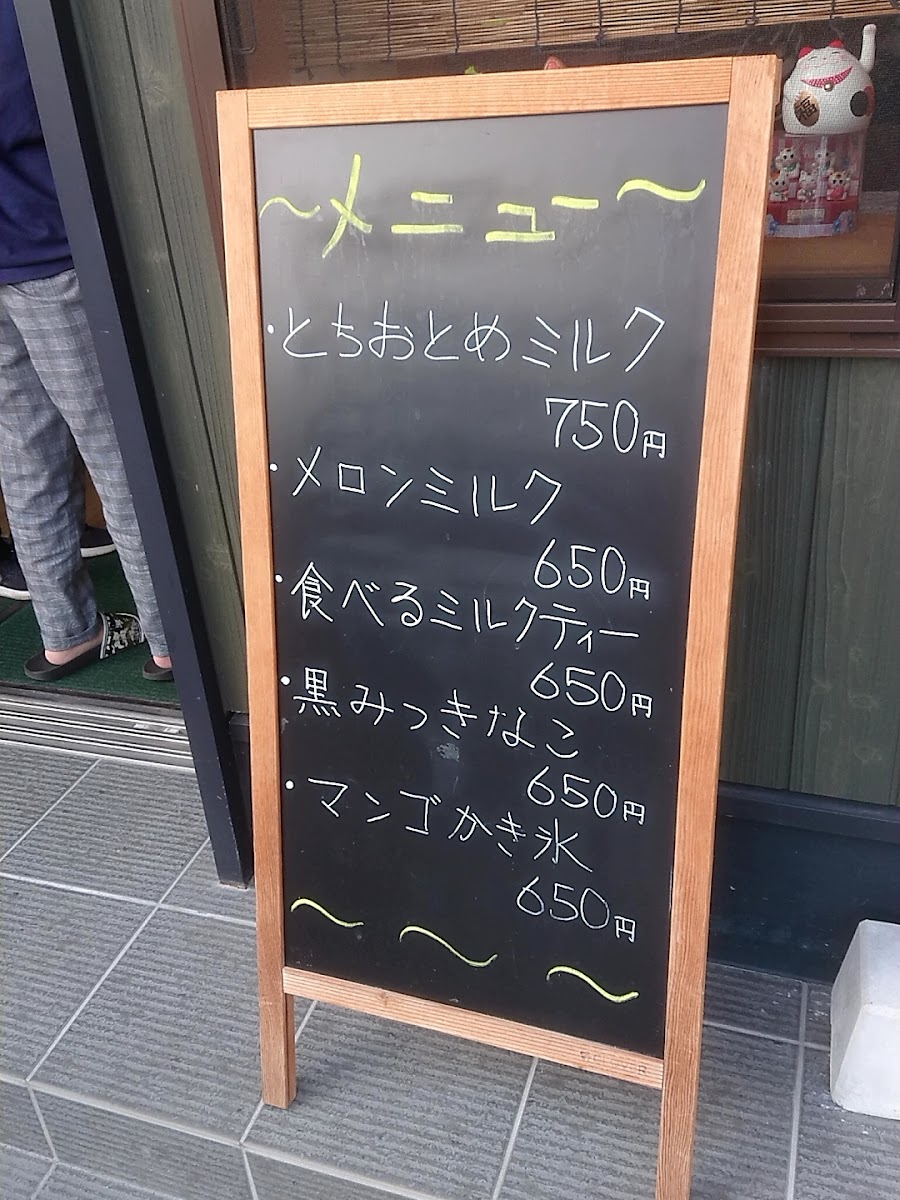 ～メニュー～
・とちおとめミルク
750円
・メロンミルク
650円
・食べるミルクティー
650円
・黒みつきなこ
650円
・マンゴかき氷
650円
～ ～ ～
福